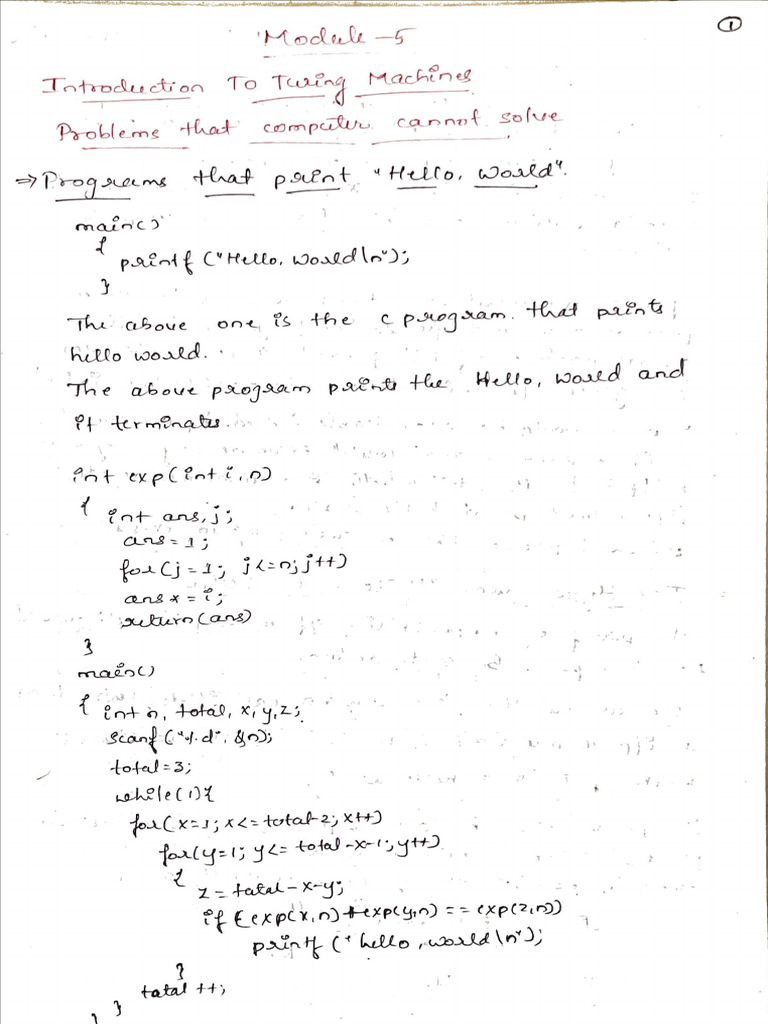 ①
Module - 5
Introduction To Turing Machines
Problems that computer cannot solve
⇒ Programs that print "Hello, World".
main()
{
printf ("Hello, World\n");
}
The above one is the c program. that prints
hello world.
The above program prints the Hello, World and
it terminates.
int exp(int i, n)
{ int ans, j;
ans = 1;
for(j = 1; j<=n; j++)
ans x = i;
return(ans)
}
main()
{ int n, total, x, y, z;
scanf ("%d", &n);
total = 3;
while(1){
for(x=1; x<=total-2; x++)
for(y=1; y<= total-x-1; y++)
{
z = total-x-y;
if (exp(x,n) + exp(y,n) == exp(z,n))
printf ("hello, world\n");
}
total ++;
} }